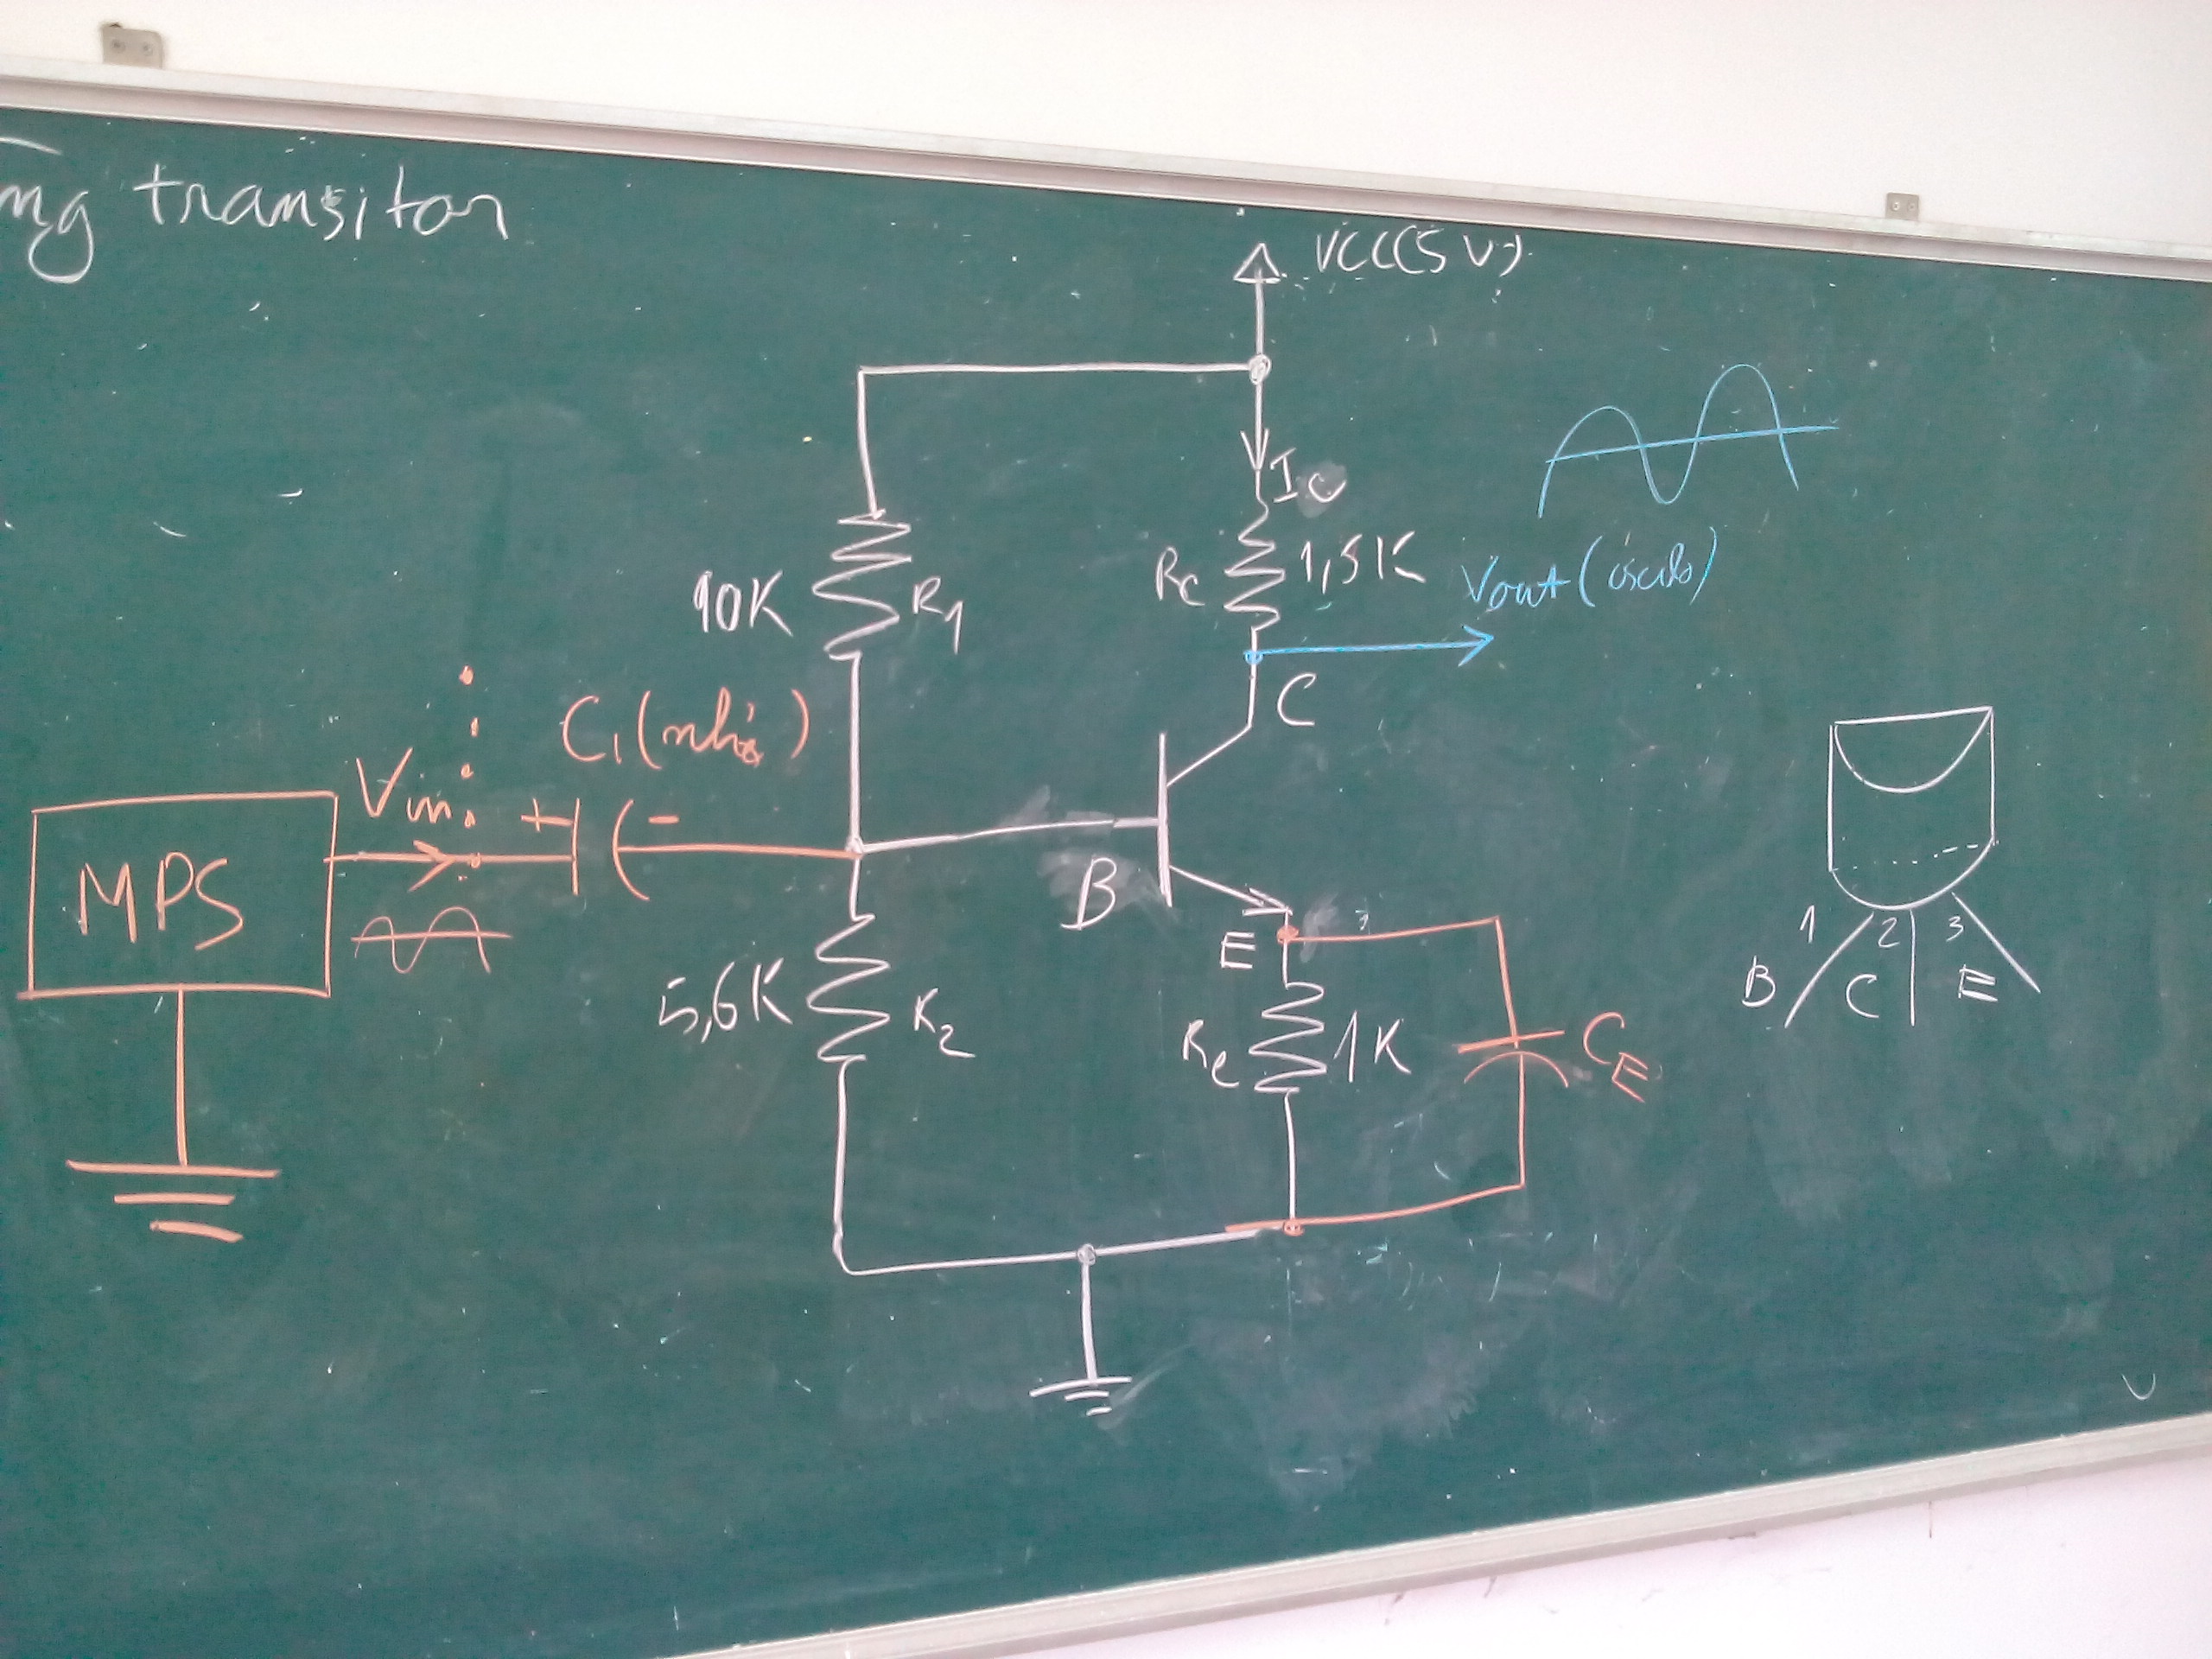 ng transitor
VCC(5V)
Ic
10K
R1
Rc
1,5K
Vout (oscilo)
C1 (nhỏ)
C
Vin
+
-
MPS
B
E
5,6K
R2
Re
1K
CE
1
2
3
B
C
E